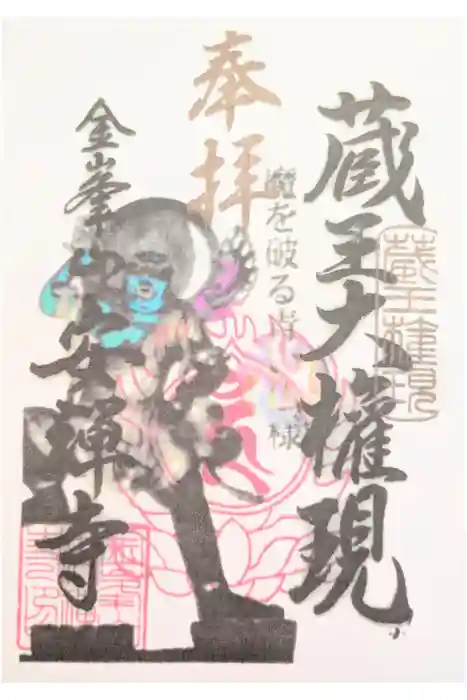 奉拝
蔵王大権現
蔵王権現
魔を破る寺
様
金峯山安禅寺